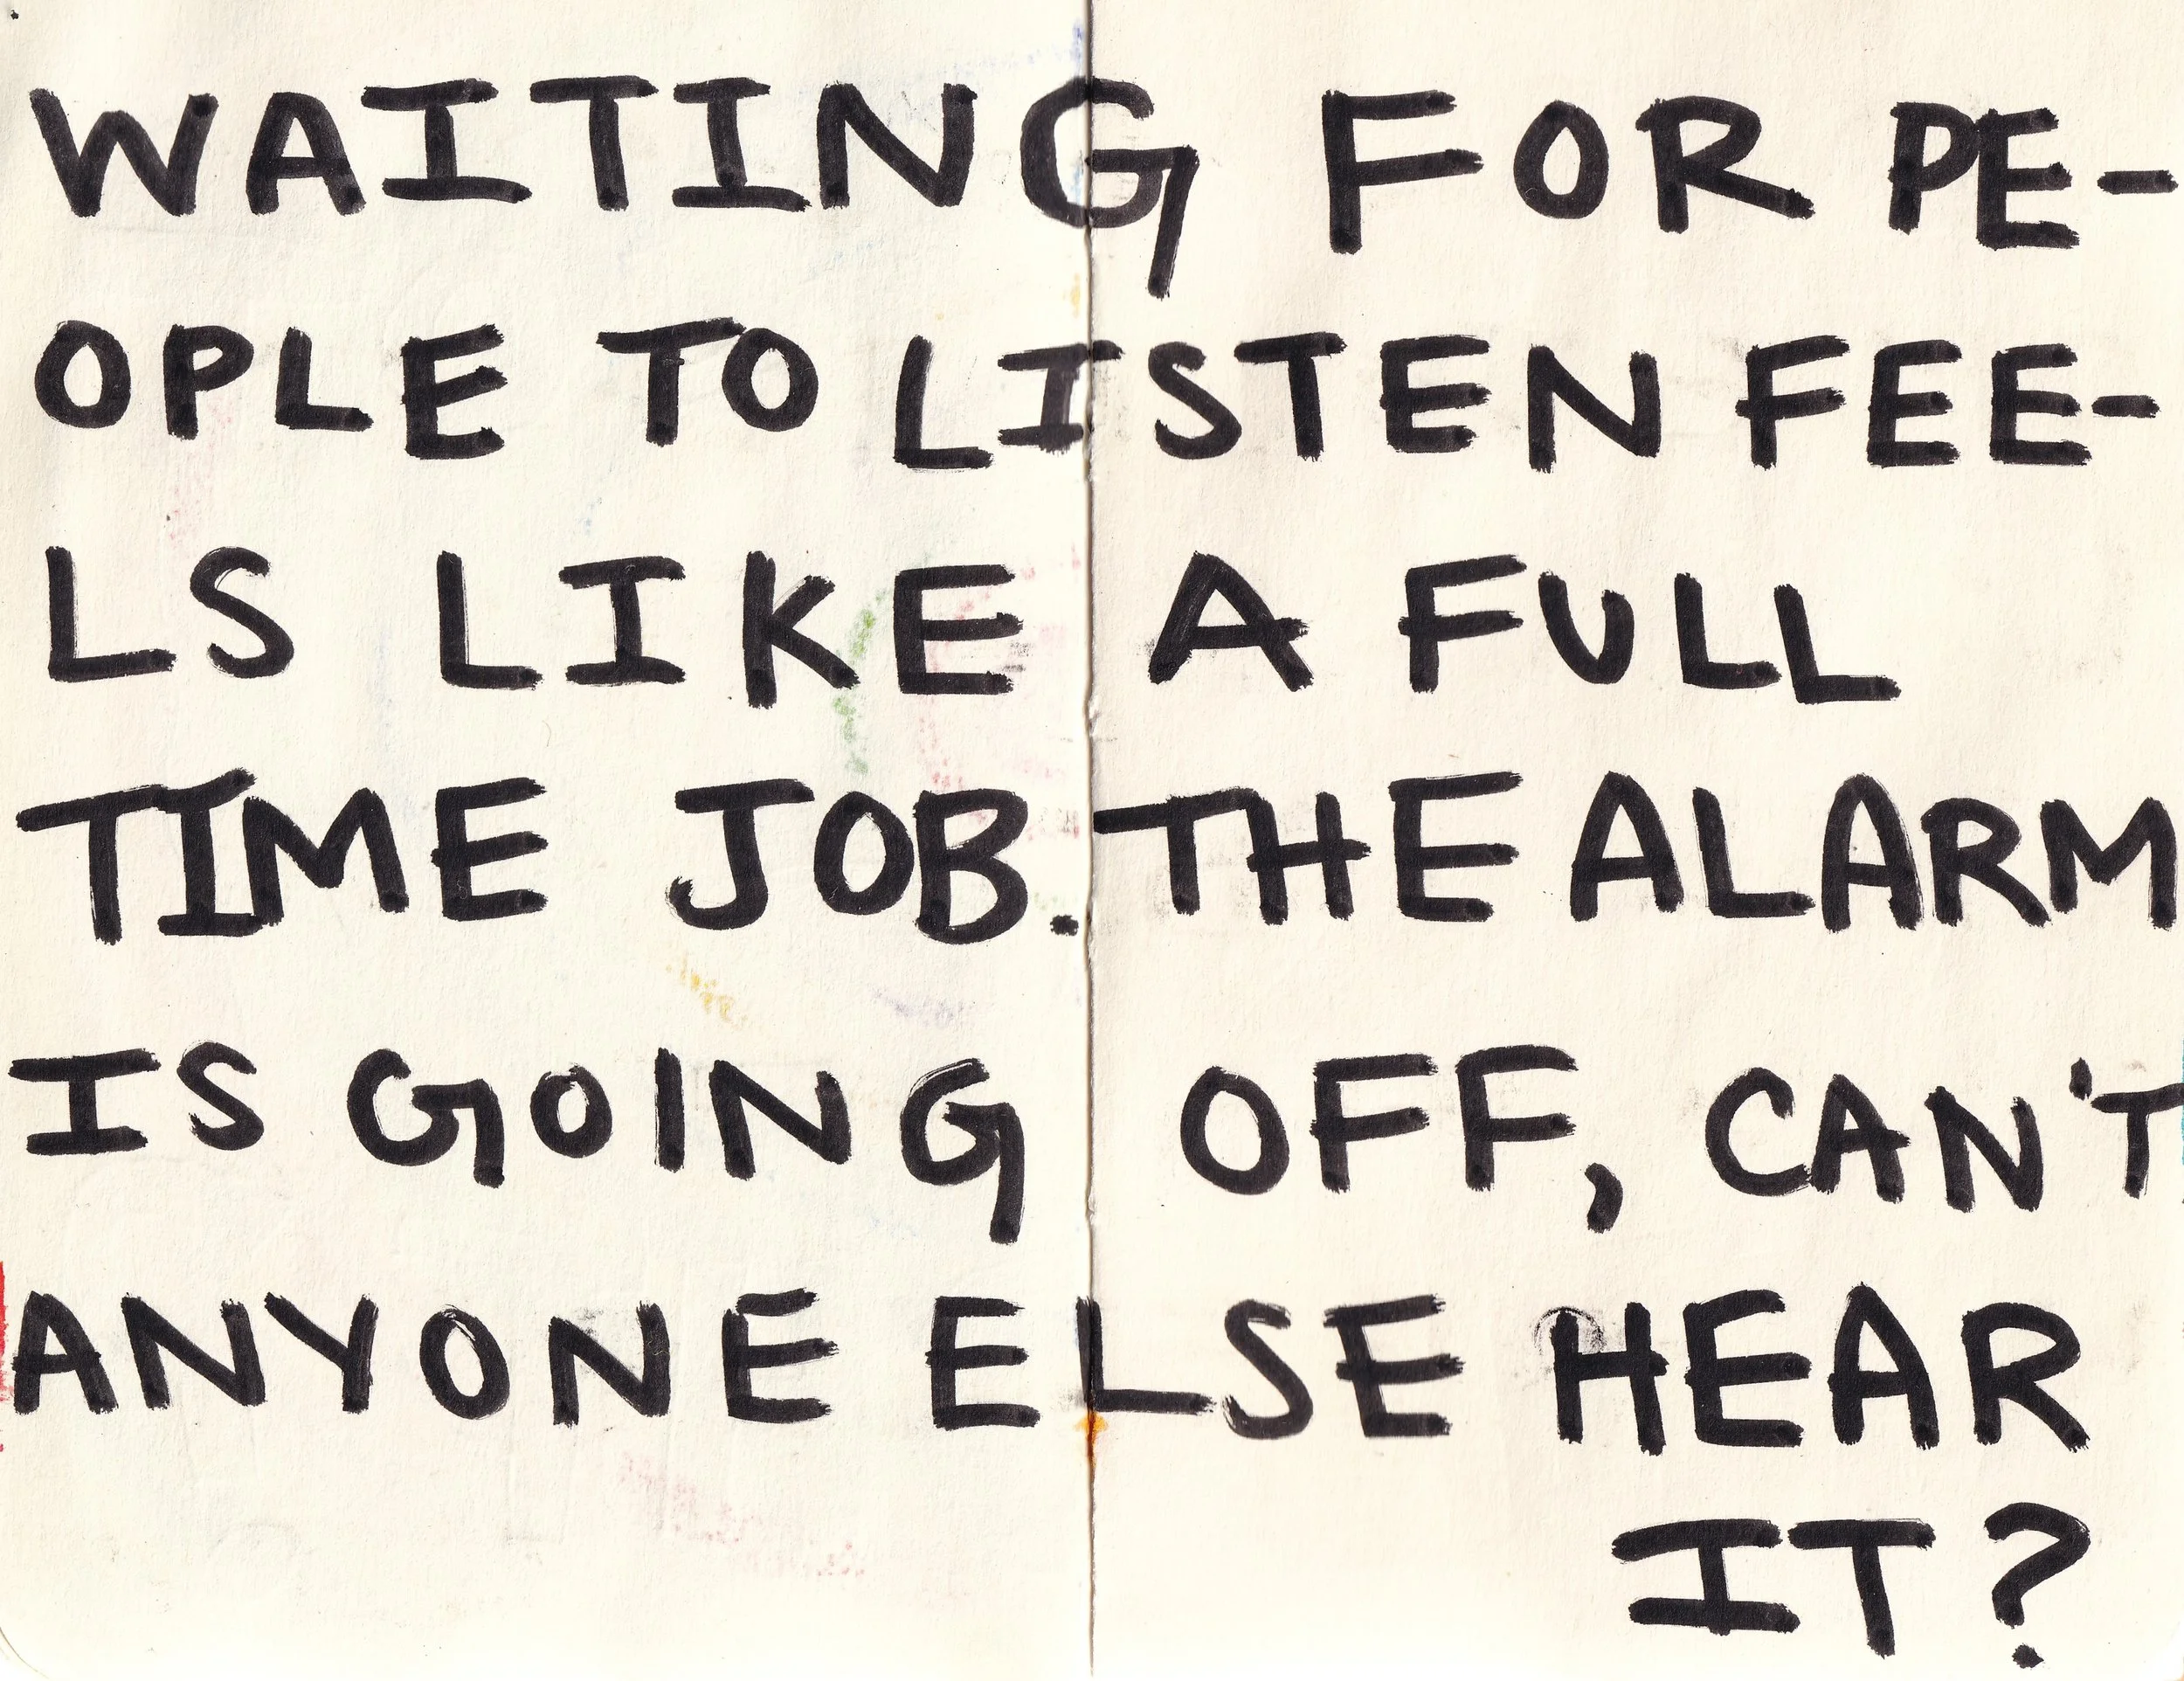 WAITING FOR PE-
OPLE TO LISTEN FEE-
LS LIKE A FULL
TIME JOB. THE ALARM
IS GOING OFF, CAN'T
ANYONE ELSE HEAR
IT?